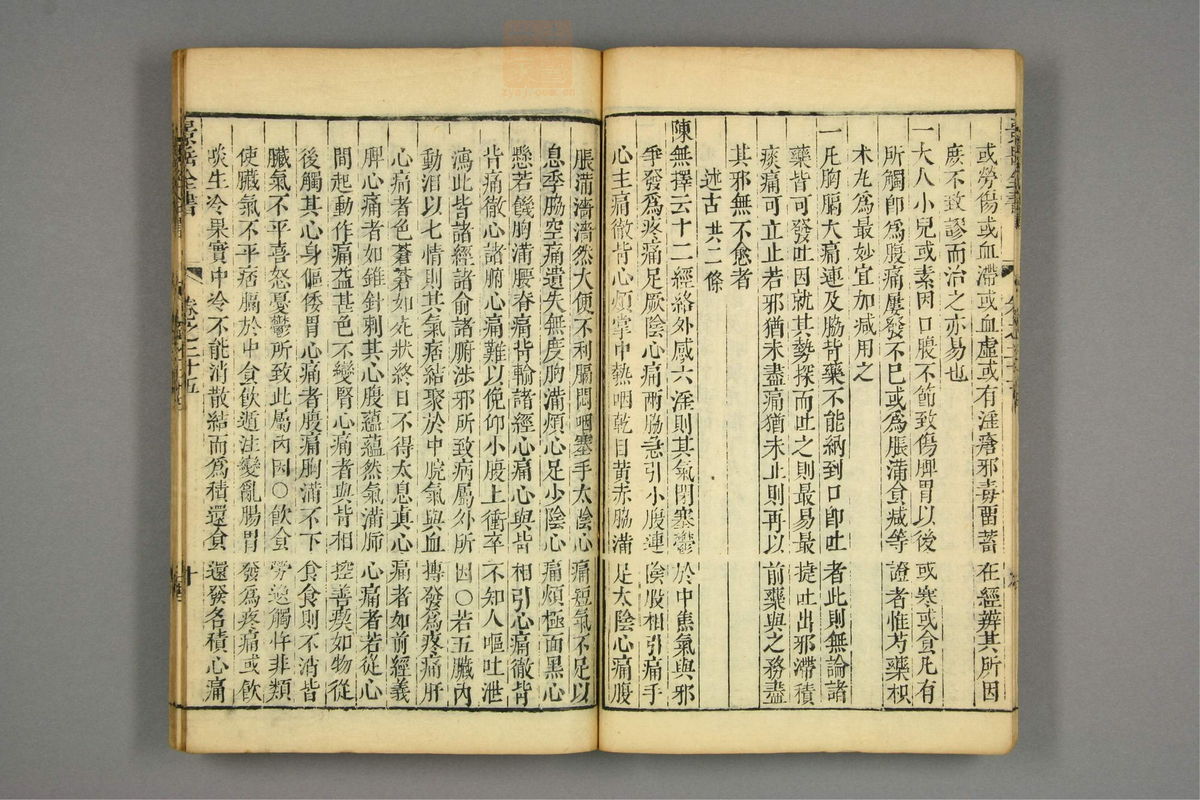 或勞傷或血滯或血虛或有淫瘡邪毒畱蓄在經辨其所因
庶不致謬而治之亦易也
一大人小兒或素因口腹不節致傷脾胃以後或寒或食凡有
所觸卽爲腹痛屢發不已或爲脹滿食減等證者惟芍藥枳
术丸爲最妙宜加減用之
一凡胸膈大痛連及脇背藥不能納到口卽吐者此則無論諸
藥皆可發吐因就其勢探而吐之則最易最捷吐出邪滯積
痰痛可立止若邪猶未盡痛猶未止則再以前藥與之務盡
其邪無不愈者
述古 共二條
陳無擇云十二經絡外感六淫則其氣閉塞鬱於中焦氣與邪
爭發爲疼痛足厥陰心痛兩脇急引小腹連陰股相引痛手
心主痛徹背心煩掌中熱咽乾目黃赤脇滿足太陰心痛腹
脹滿濇濇然大便不利膈悶咽塞手太陰心痛短氣不足以
息季脇空痛遺失無度胸滿煩心足少陰心痛煩極面黑心
懸若饑胸滿腰脊痛背輸諸經心痛心與背相引心痛徹背
背痛徹心諸腑心痛難以俛仰小腹上衝卒不知人嘔吐泄
瀉此皆諸經諸俞諸腑涉邪所致病屬外所因○若五臟內
動汨以七情則其氣痞結聚於中脘氣與血搏發爲疼痛肝
心痛者色蒼蒼如死狀終日不得太息眞心痛者如前經義
脾心痛者如錐針刺其心腹蘊蘊然氣滿肺心痛者若從心
間起動作痛益甚色不變腎心痛者與背相控善瘈如物從
後觸其心身傴僂胃心痛者腹痛胸滿不下食食則不消皆
臟氣不平喜怒憂鬱所致此屬內因○飲食勞逸觸忤非類
使臟氣不平痞膈於中食飲遁注變亂腸胃發爲疼痛或飲
啖生冷果實中冷不能消散結而爲積還食還發名積心痛
景岳全書
卷之二十五
十